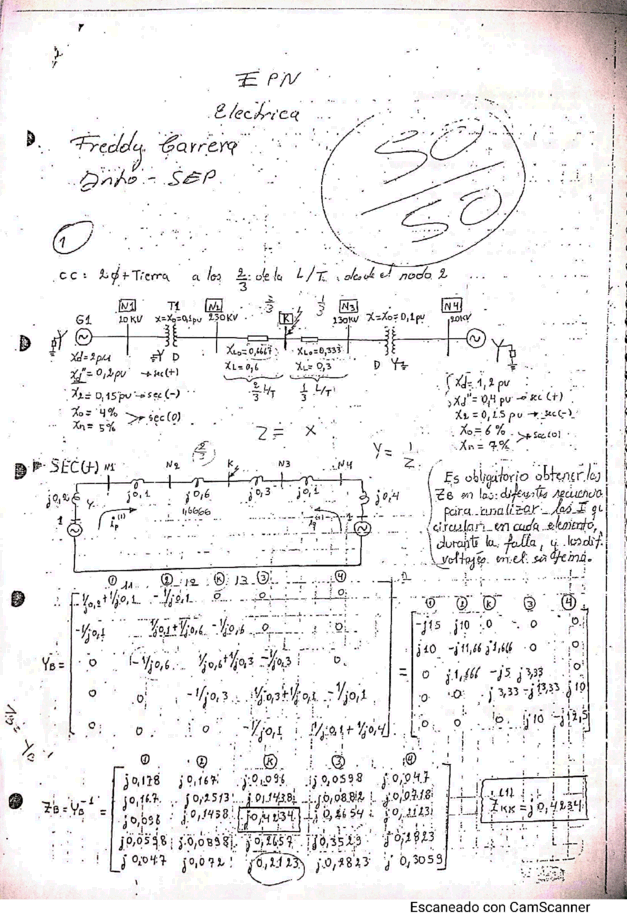 EPN
Electrica
Freddy Carrera
Anto - SEP
50
50
1
CC: 2ϕ + Tierra a los 2/3 de la L/T, desde el nodo 2
2/3 1/3
N1 T1 N2 K N3 N4
G1 10 KV X=X0=0,1pu 230KV 230KV X=X0=0,1pu 20KV
Xd=2pu Y D XL0=0,6667 XL0=0,333 D Y
Xd"=0,2pu → sec(+) XL=0,6 XL=0,3 Xd=1,2 pu
X2=0,15pu → sec(-) 2/3 L/T 1/3 L/T Xd"=0,4 pu → sec(+)
X0=4% X2=0,25 pu → sec(-)
Xn=5% > sec(0) X0=6% > sec(0)
Z ≐ X Xn=7%
Y = 1/Z
2/3
SEC(+) N1 N2 K N3 N4
j0,2 j0,1 j0,6 j0,3 j0,1 j0,4
1,6666
1 1
Es obligatorio obtener los
ZB en las diferentes secuencias
para analizar las I q
circulan en cada elemento,
durante la falla, y los dif.
voltajes en el sistema.
11 12 13
① ② Ⓚ ③ ④
1/j0,2+1/j0,1 -1/j0,1 0 0 0
-1/j0,1 1/j0,1+1/j0,6 -1/j0,6 0 0
YB = 0 -1/j0,6 1/j0,6+1/j0,3 -1/j0,3 0
0 0 -1/j0,3 1/j0,3+1/j0,1 -1/j0,1
0 0 0 -1/j0,1 1/j0,1+1/j0,4
=
① ② Ⓚ ③ ④
-j15 j10 0 0 0
j10 -j11,66 j1,666 0 0
0 j1,666 -j5 j3,33 0
0 0 j3,33 -j13,33 j10
0 0 0 j10 -j12,5
① ② Ⓚ ③ ④
j0,178 j0,167 j0,096 j0,0598 j0,047
j0,167 j0,2513 j0,1438 j0,0882 j0,0718
ZB=YB⁻¹ = j0,096 j0,1458 j0,4234 j0,2654 j0,2123
j0,0598 j0,0898 j0,2657 j0,3529 j0,2823
j0,047 j0,072 j0,2123 j0,2823 j0,3059
ZKK(1) = j0,4234
Escaneado con CamScanner